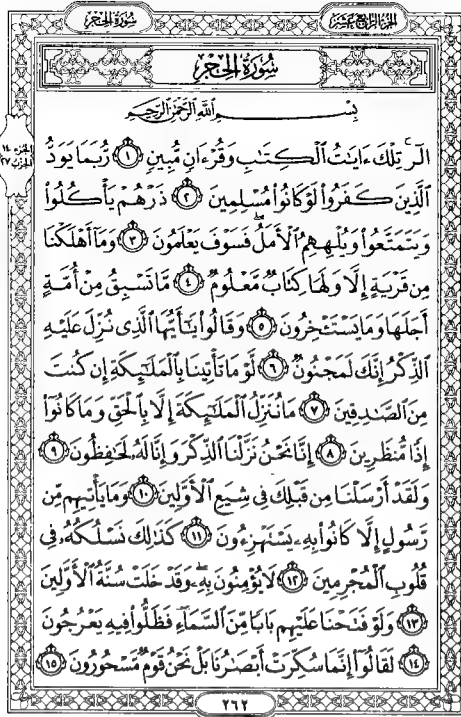 الجزء الرابع عشر
سورة الحجر
سُورَةُ الحِجْرِ
بِسْمِ اللَّهِ الرَّحْمَٰنِ الرَّحِيمِ
الجزء ١٤
الحزب ٢٧
الٓر ۚ تِلْكَ ءَايَٰتُ ٱلْكِتَٰبِ وَقُرْءَانٍ مُّبِينٍ ١ رُّبَمَا يَوَدُّ
ٱلَّذِينَ كَفَرُوا۟ لَوْ كَانُوا۟ مُسْلِمِينَ ٢ ذَرْهُمْ يَأْكُلُوا۟
وَيَتَمَتَّعُوا۟ وَيُلْهِهِمُ ٱلْأَمَلُ ۖ فَسَوْفَ يَعْلَمُونَ ٣ وَمَآ أَهْلَكْنَا
مِن قَرْيَةٍ إِلَّا وَلَهَا كِتَابٌ مَّعْلُومٌ ٤ مَّا تَسْبِقُ مِنْ أُمَّةٍ
أَجَلَهَا وَمَا يَسْتَـْٔخِرُونَ ٥ وَقَالُوا۟ يَٰٓأَيُّهَا ٱلَّذِى نُزِّلَ عَلَيْهِ
ٱلذِّكْرُ إِنَّكَ لَمَجْنُونٌ ٦ لَّوْ مَا تَأْتِينَا بِٱلْمَلَٰٓئِكَةِ إِن كُنتَ
مِنَ ٱلصَّٰدِقِينَ ٧ مَا نُنَزِّلُ ٱلْمَلَٰٓئِكَةَ إِلَّا بِٱلْحَقِّ وَمَا كَانُوٓا۟
إِذًا مُّنظَرِينَ ٨ إِنَّا نَحْنُ نَزَّلْنَا ٱلذِّكْرَ وَإِنَّا لَهُۥ لَحَٰفِظُونَ ٩
وَلَقَدْ أَرْسَلْنَا مِن قَبْلِكَ فِى شِيَعِ ٱلْأَوَّلِينَ ١٠ وَمَا يَأْتِيهِم مِّن
رَّسُولٍ إِلَّا كَانُوا۟ بِهِۦ يَسْتَهْزِءُونَ ١١ كَذَٰلِكَ نَسْلُكُهُۥ فِى
قُلُوبِ ٱلْمُجْرِمِينَ ١٢ لَا يُؤْمِنُونَ بِهِۦ ۖ وَقَدْ خَلَتْ سُنَّةُ ٱلْأَوَّلِينَ
١٣ وَلَوْ فَتَحْنَا عَلَيْهِم بَابًا مِّنَ ٱلسَّمَآءِ فَظَلُّوا۟ فِيهِ يَعْرُجُونَ
١٤ لَقَالُوٓا۟ إِنَّمَا سُكِّرَتْ أَبْصَٰرُنَا بَلْ نَحْنُ قَوْمٌ مَّسْحُورُونَ ١٥
٢٦٢